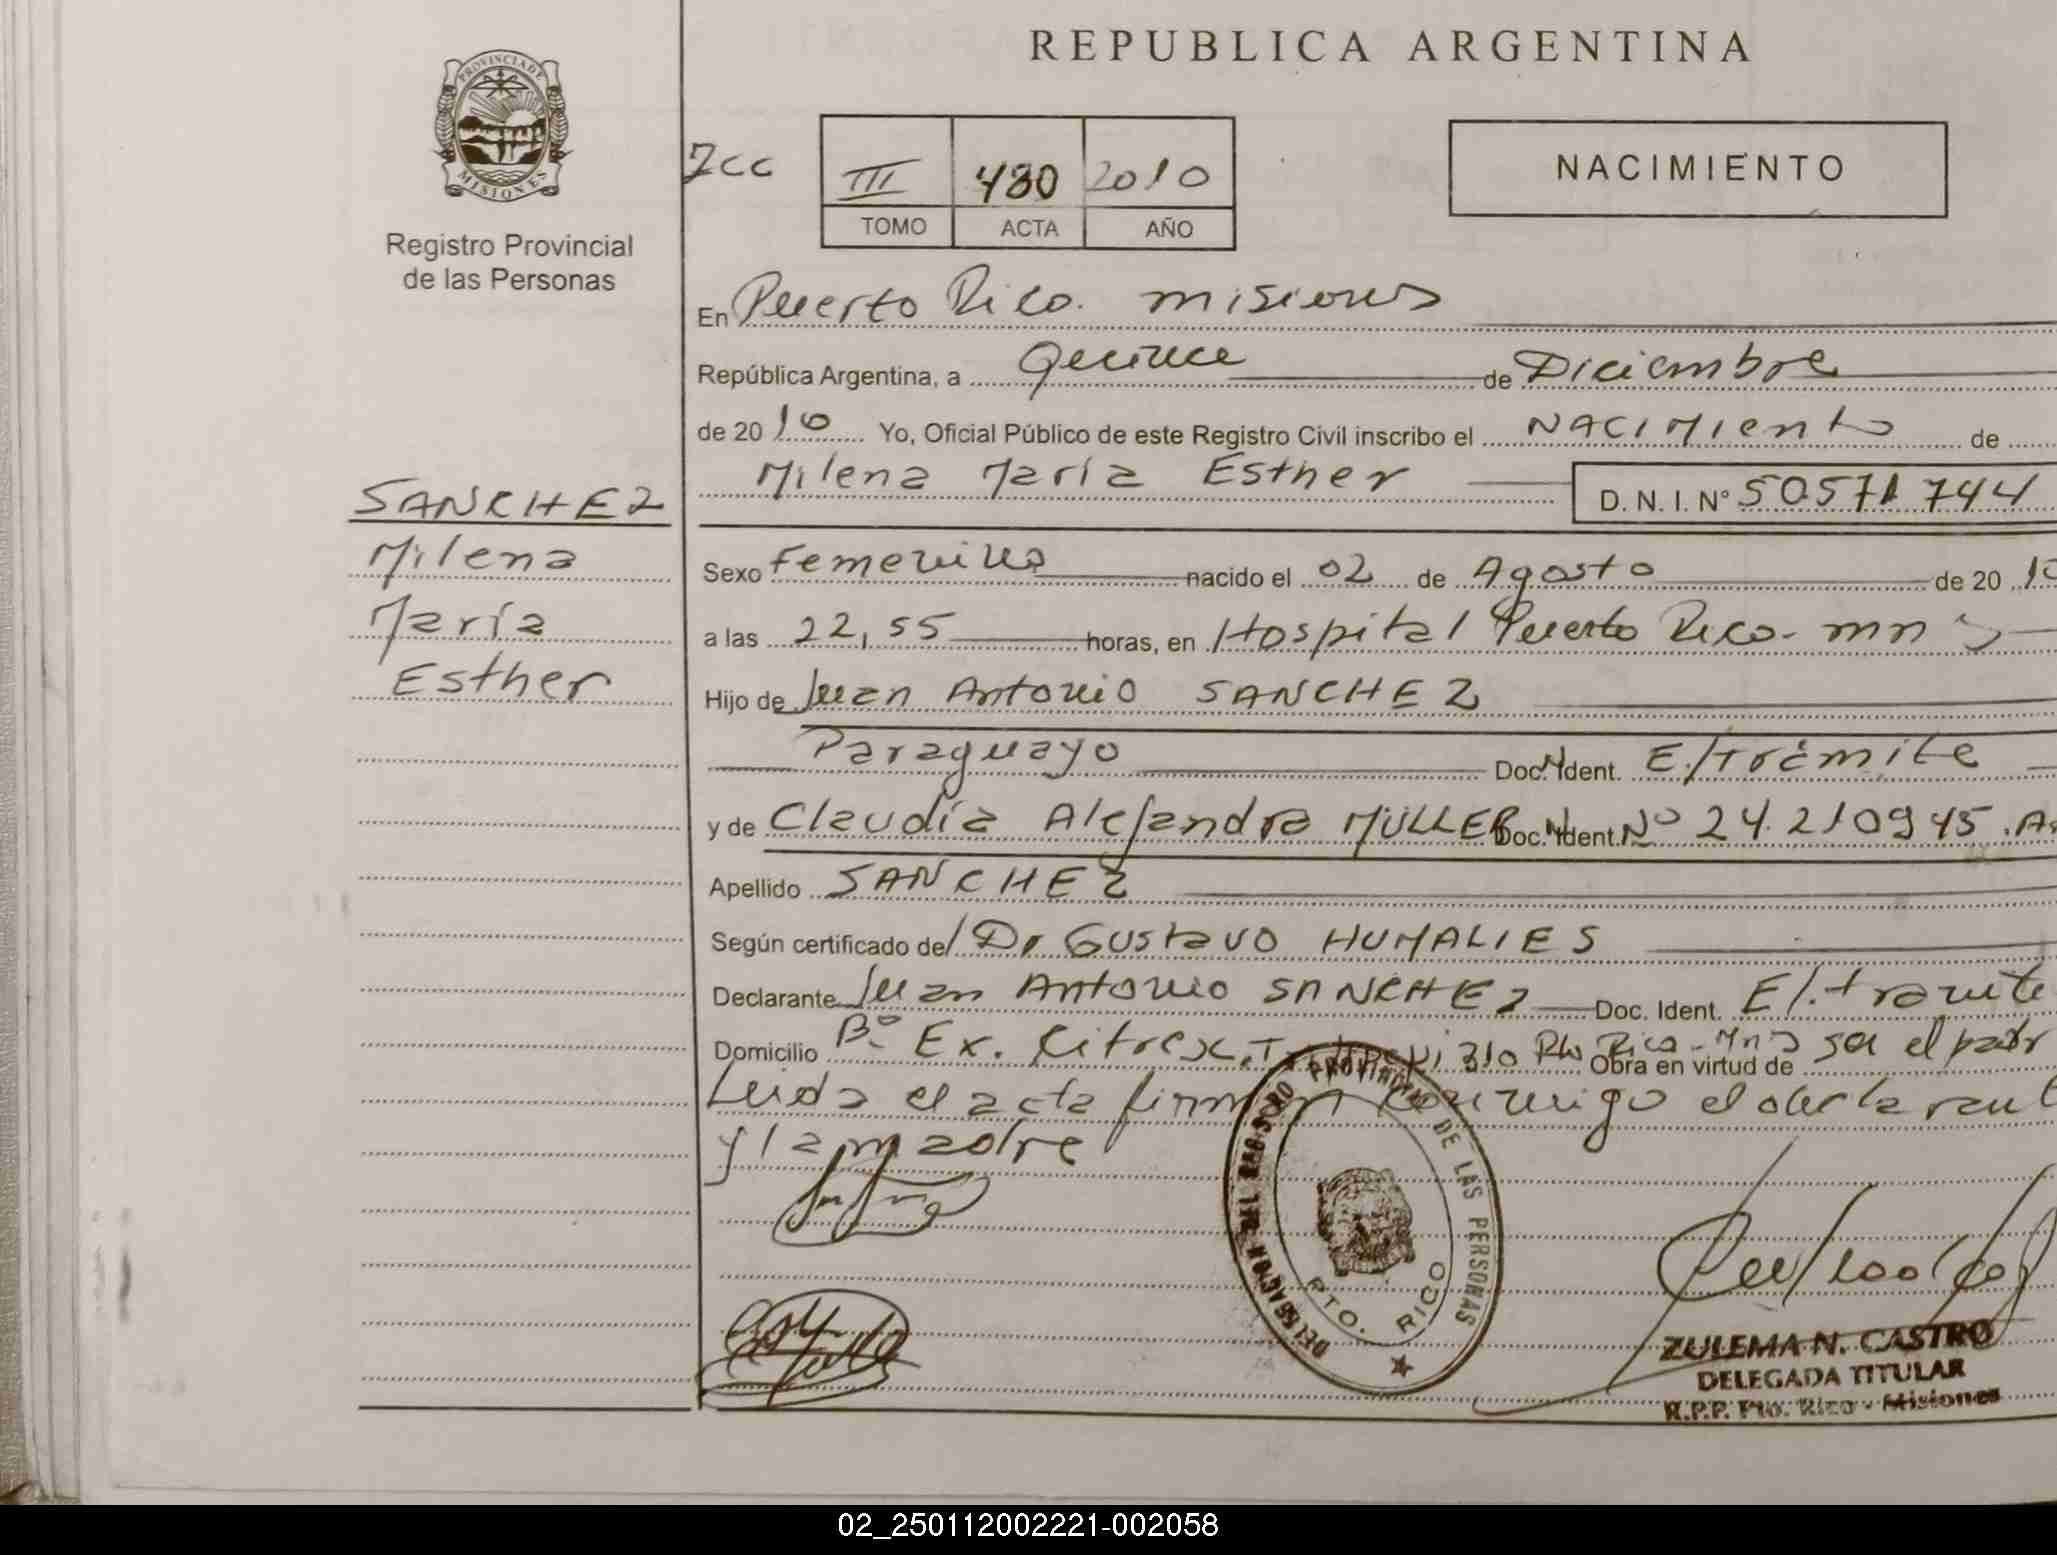 REPUBLICA ARGENTINA
PROVINCIA DE
MISIONES
Registro Provincial
de las Personas
III 430 2010
TOMO ACTA AÑO
NACIMIENTO
En Puerto Rico. misiones
República Argentina, a Quince de Diciembre
de 2010 Yo, Oficial Público de este Registro Civil inscribo el NACIMiento de
Milena María Esther D. N. I. Nº 50571744
SANCHEZ
Milena
María
Esther
Sexo Femenino nacido el 02 de Agosto de 20 10
a las 22,55 horas, en Hospital Puerto Rico- mns
Hijo de Juan Antonio SANCHEZ
Paraguayo Doc. Ident. E/trámite
y de Claudia Alejandra MÜLLER Doc. Ident. Nº 24.210945.
Apellido SANCHEZ
Según certificado de/ Dr Gustavo HUMALIES
Declarante Juan Antonio SANCHEZ Doc. Ident. E/.tramite
Domicilio Bº Ex. Citrex, 310 Pto Rico-Mns Obra en virtud de ser el padre
Leida el acta firman conmigo el declarante
y la madre
DELEGACION REGISTRO PROVINCIAL DE LAS PERSONAS
PTO. RICO
ZULEMA N. CASTRO
DELEGADA TITULAR
R.P.P. Pto. Rico - Misiones
02_250112002221-002058